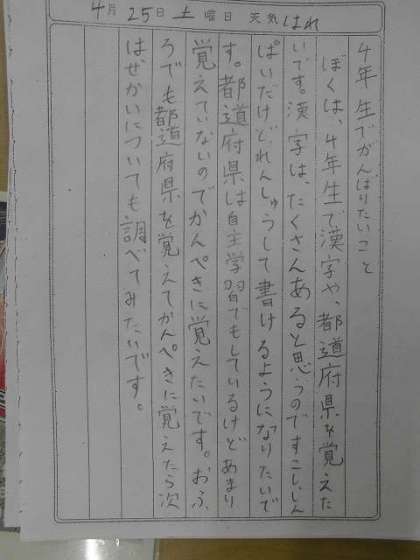 4月25日土曜日 天気はれ
4年生でがんばりたいこと
ぼくは、4年生で漢字や、都道府県を覚えた
いです。漢字は、たくさんあると思うのですこししん
ぱいだけど、れんしゅうして書けるようになりたいで
す。都道府県は自主学習でもしているけどあまり
覚えていないのでかんぺきに覚えたいです。おふ
ろでも都道府県を覚えてかんぺきに覚えたら次
はせかいについても調べてみたいです。